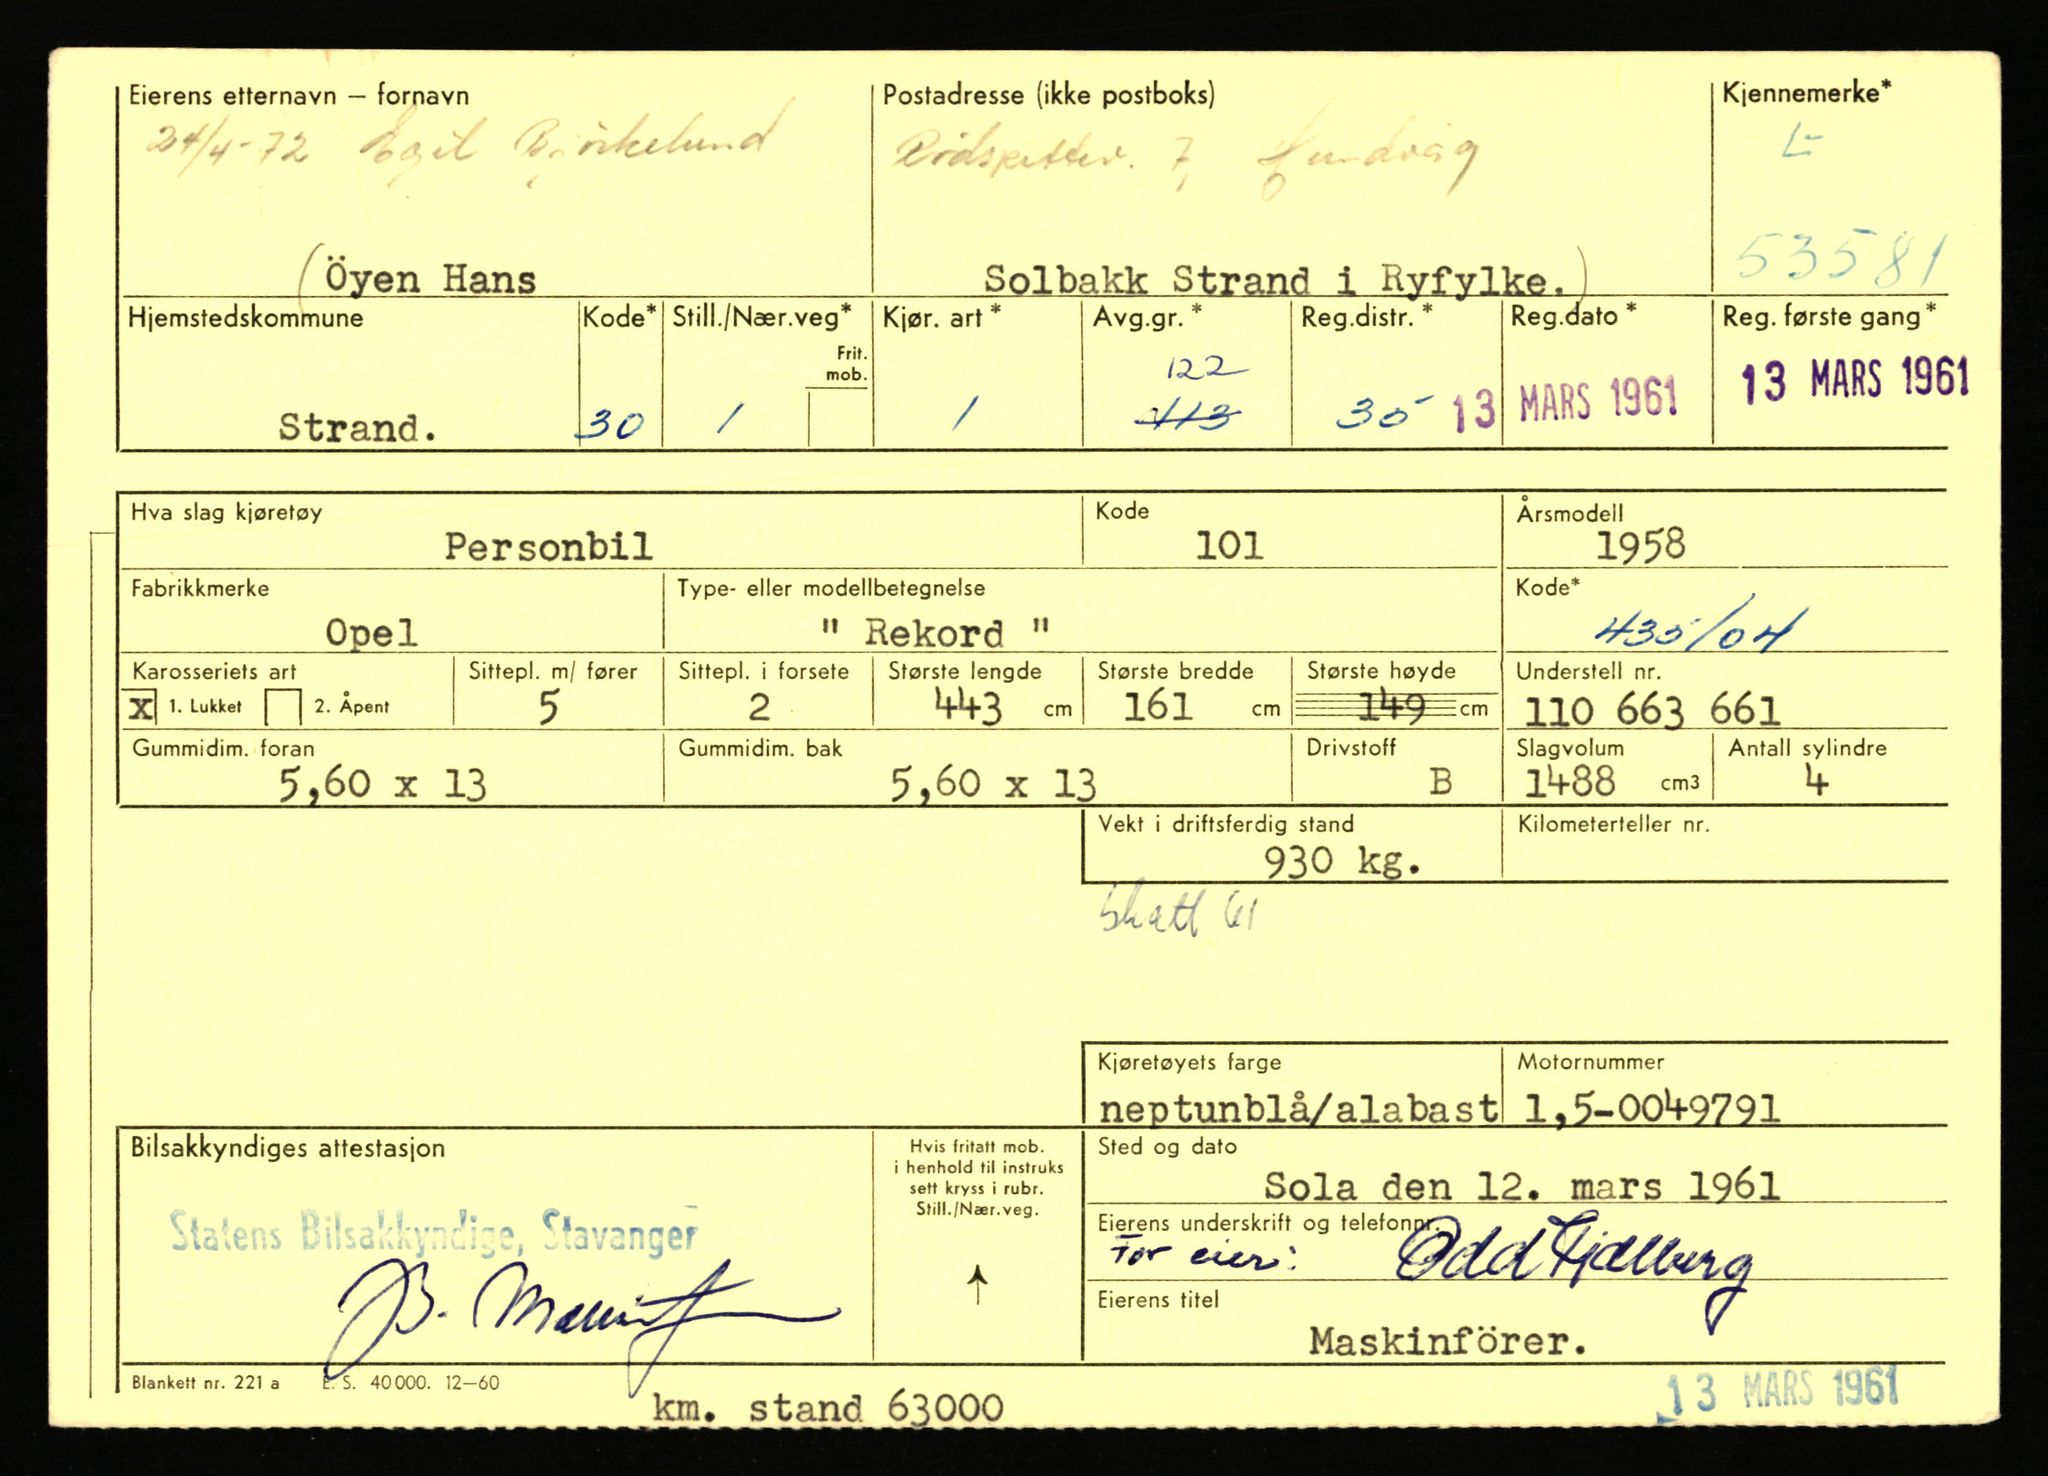 Eierens etternavn – fornavn Postadresse (ikke postboks) Kjennemerke*
24/4-72 Egil Bjørkelund 7, Hundvåg L-
53581
(Öyen Hans Solbakk Strand i Ryfylke.)
Hjemstedskommune Kode* Still./Nær.veg* Kjør. art* Avg.gr.* Reg.distr.* Reg.dato* Reg. første gang*
Frit.
mob.
122
Strand. 30 1 1 113 35 13 MARS 1961 13 MARS 1961
Hva slag kjøretøy Kode Årsmodell
Personbil 101 1958
Fabrikkmerke Type- eller modellbetegnelse Kode*
Opel " Rekord " 435/04
Karosseriets art Sittepl. m/ fører Sittepl. i forsete Største lengde Største bredde Største høyde Understell nr.
x 1. Lukket 2. Åpent 5 2 443 cm 161 cm 149 cm 110 663 661
Gummidim. foran Gummidim. bak Drivstoff Slagvolum Antall sylindre
5,60 x 13 5,60 x 13 B 1488 cm3 4
Vekt i driftsferdig stand Kilometerteller nr.
930 kg.
Skatt 61
Kjøretøyets farge Motornummer
neptunblå/alabast 1,5-0049791
Bilsakkyndiges attestasjon Hvis fritatt mob. Sted og dato
i henhold til instruks
sett kryss i rubr.
Still./Nær.veg.
Sola den 12. mars 1961
Statens Bilsakkyndige, Stavanger
Eierens underskrift og telefonnr.
For eier: Odd Fjælberg
B.
Eierens titel
Maskinförer.
Blankett nr. 221 a E. S. 40 000. 12–60
km. stand 63000
13 MARS 1961